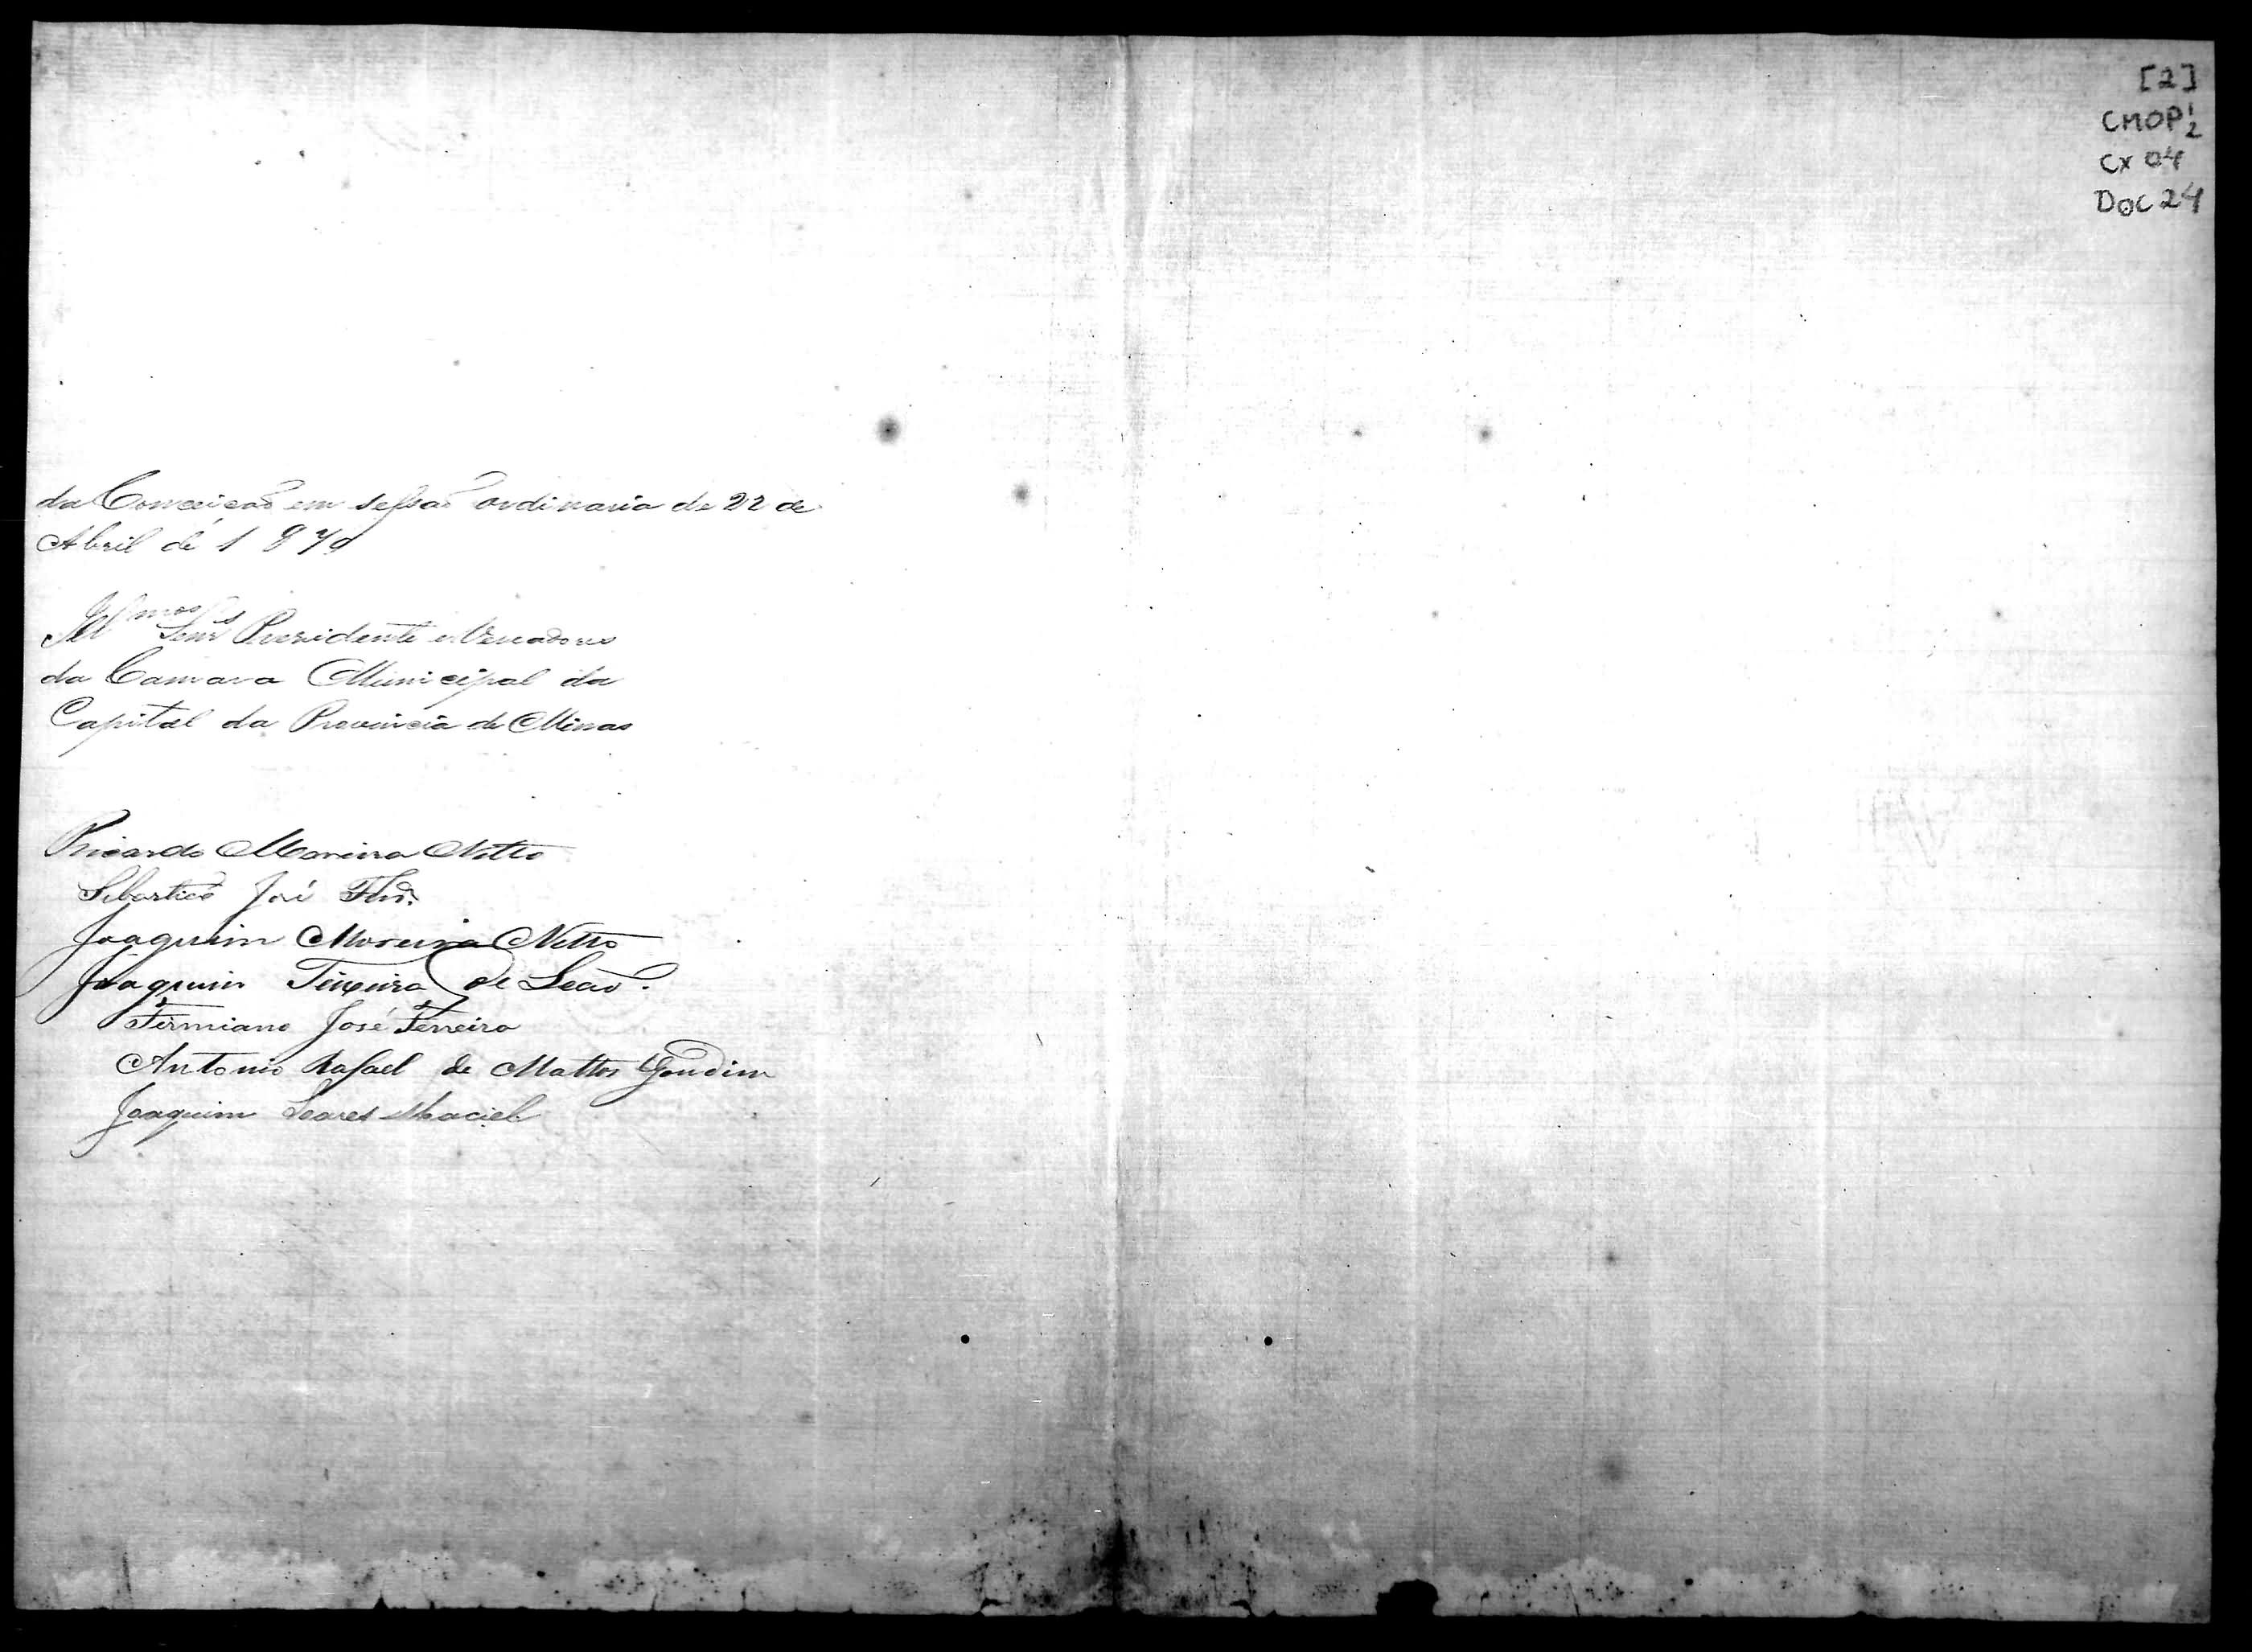 [2]
CMOP 1/2
Cx 04
Doc 24
da Conceicaõ em sessaõ ordinaria de 22 de
Abril de 1870
Illmos Senrs Prezidente e Vereadores
da Camara Municipal da
Capital da Provincia de Minas
Ricardo Moreira Netto
Sebastiaõ José
Joaquim Moreira Netto
Joaquim Teixeira de Leaõ.
Firmiano José Ferreira
Antonio Rafael de Mattos Gondim
Joaquim Soares Maciel